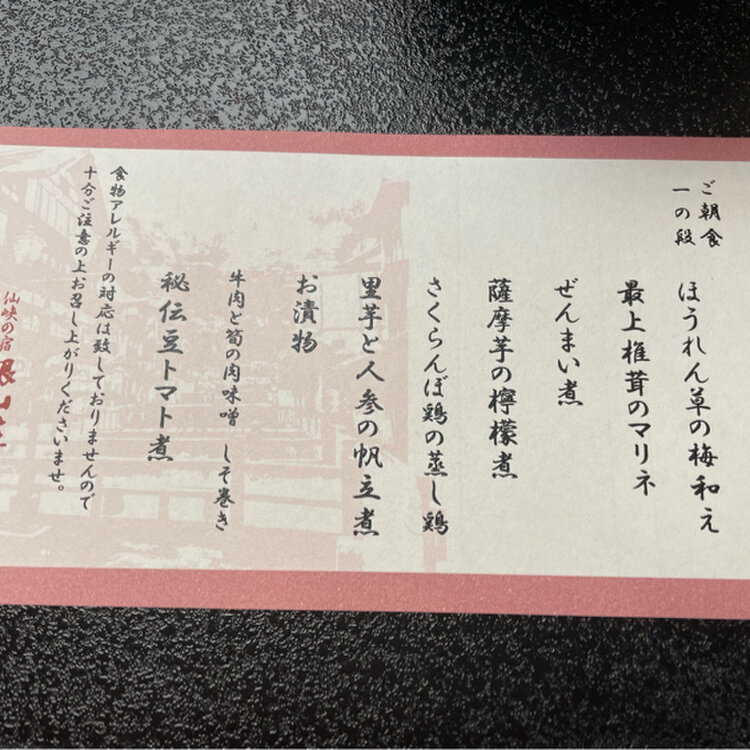 ご朝食
一の段
ほうれん草の梅和え
最上椎茸のマリネ
ぜんまい煮
薩摩芋の檸檬煮
さくらんぼ鶏の蒸し鶏
里芋と人参の帆立煮
お漬物
牛肉と筍の肉味噌 しそ巻き
秘伝豆トマト煮
食物アレルギーの対応は致しておりませんので
十分ご注意の上お召し上がりくださいませ。
仙峡の宿